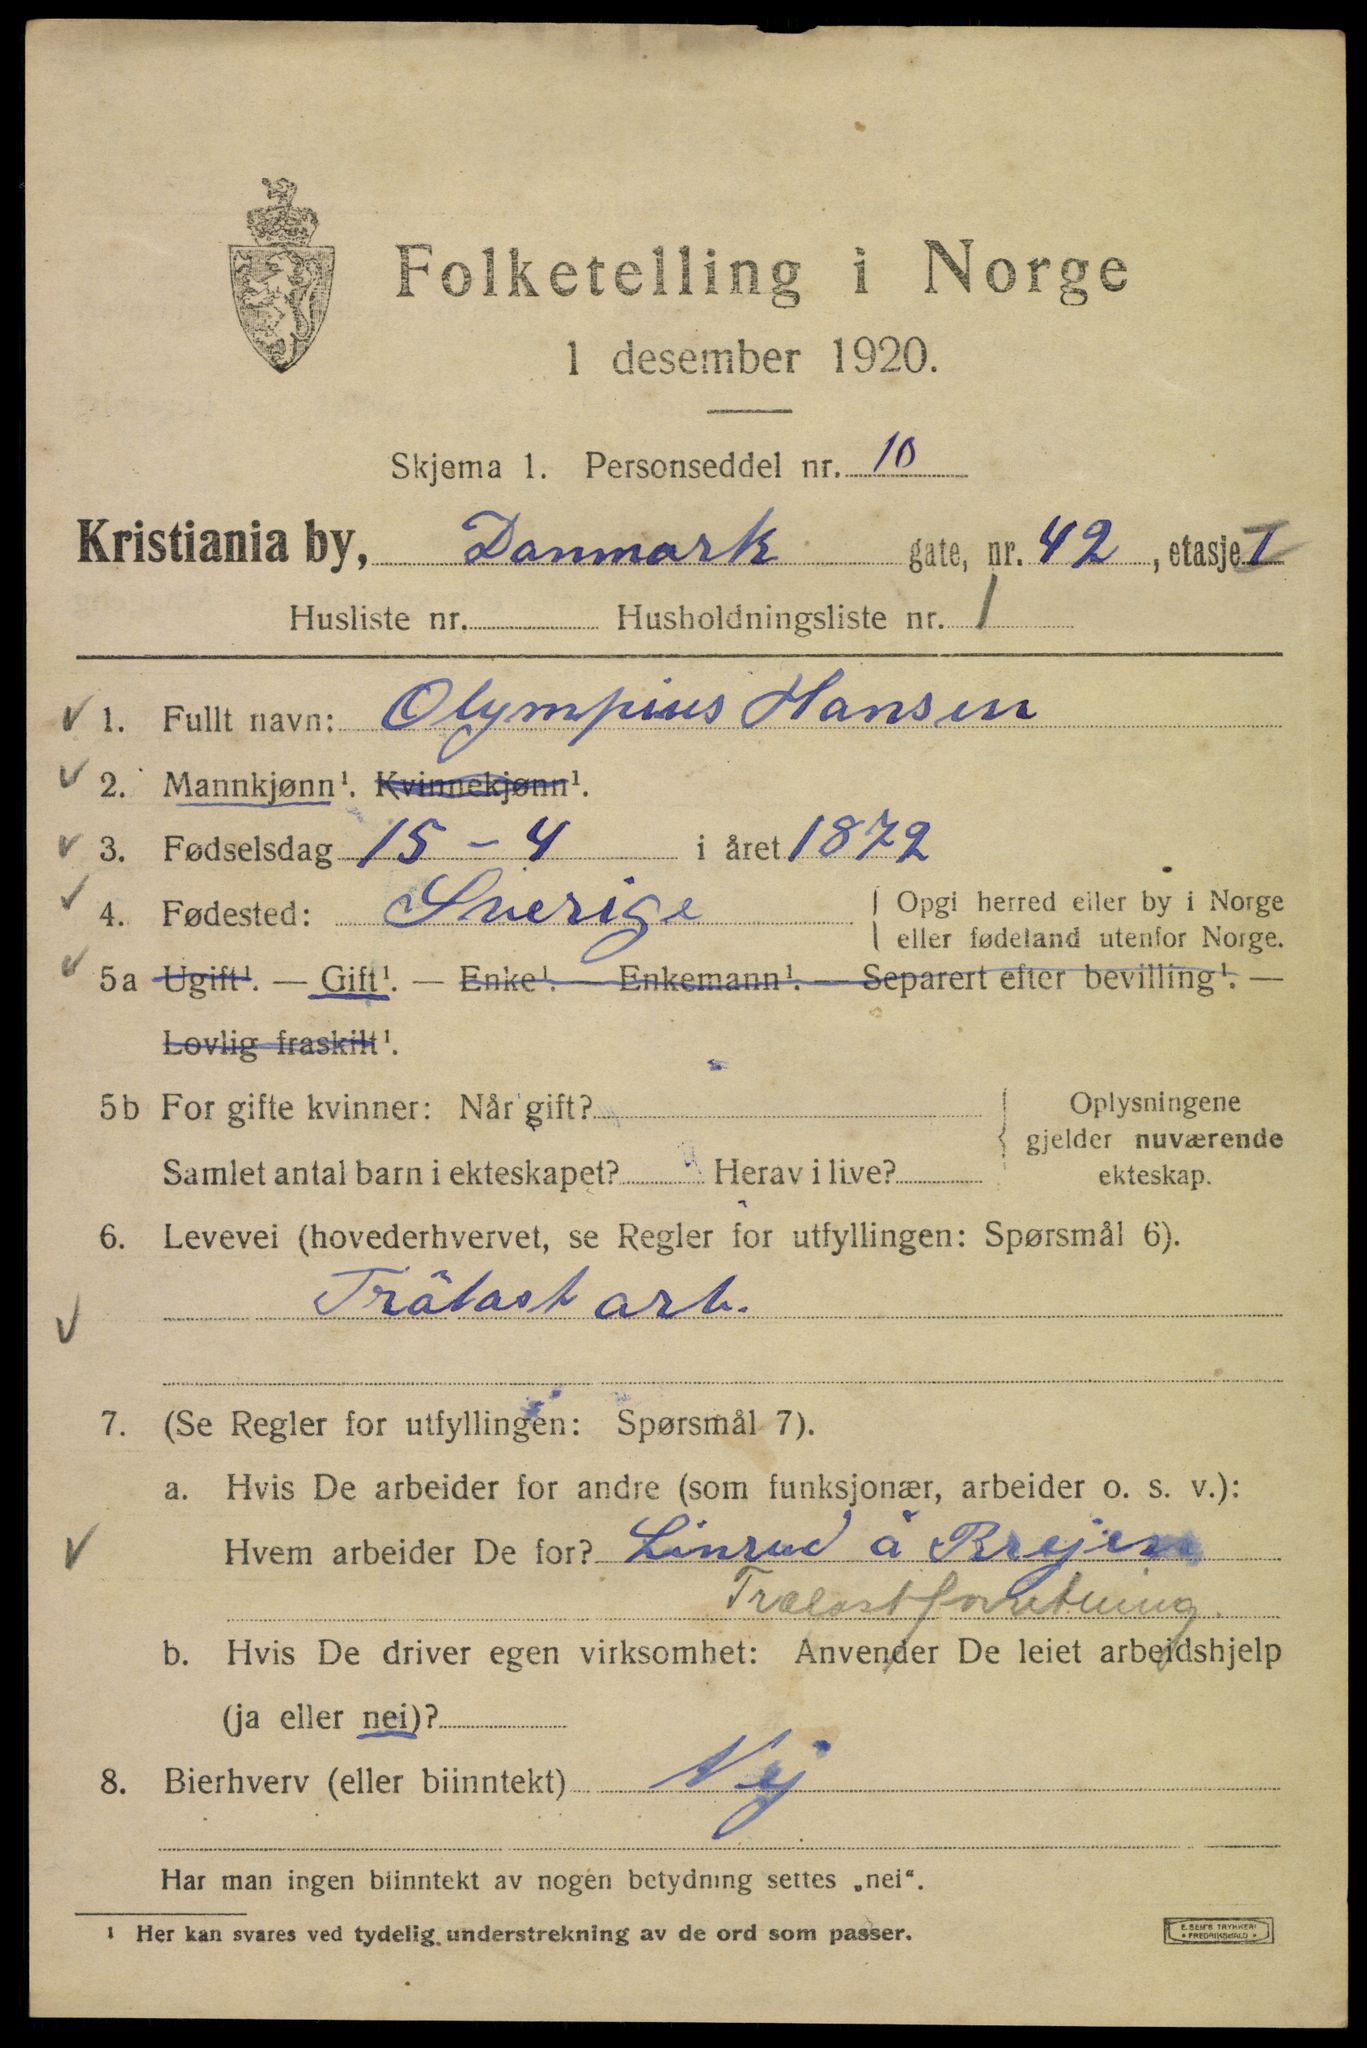 Folketelling i Norge
1 desember 1920.
Skjema 1. Personseddel nr. 10
Kristiania by, Danmark gate, nr. 42, etasje I
Husliste nr. Husholdningsliste nr. 1
1. Fullt navn: Olympius Hansen
2. Mannkjønn¹. Kvinnekjønn¹.
3. Fødselsdag 15 - 4 i året 1872
4. Fødested: Sverige Opgi herred eller by i Norge
eller fødeland utenfor Norge.
5a Ugift¹. — Gift¹. — Enke¹. — Enkemann¹. — Separert efter bevilling¹. —
Lovlig fraskilt¹.
5b For gifte kvinner: Når gift? Oplysningene
gjelder nuværende
Samlet antal barn i ekteskapet? Herav i live? ekteskap.
6. Levevei (hovederhvervet, se Regler for utfyllingen: Spørsmål 6).
Trälast arb.
7. (Se Regler for utfyllingen: Spørsmål 7).
a. Hvis De arbeider for andre (som funksjonær, arbeider o. s. v.):
Hvem arbeider De for? Linrud å Brejen
Trælastforretning.
b. Hvis De driver egen virksomhet: Anvender De leiet arbeidshjelp
(ja eller nei)?
8. Bierhverv (eller biinntekt) Nej
Har man ingen biinntekt av nogen betydning settes „nei“.
¹ Her kan svares ved tydelig understrekning av de ord som passer.
E. SEM'S TRYKKERI
* FREDRIKSHALD *